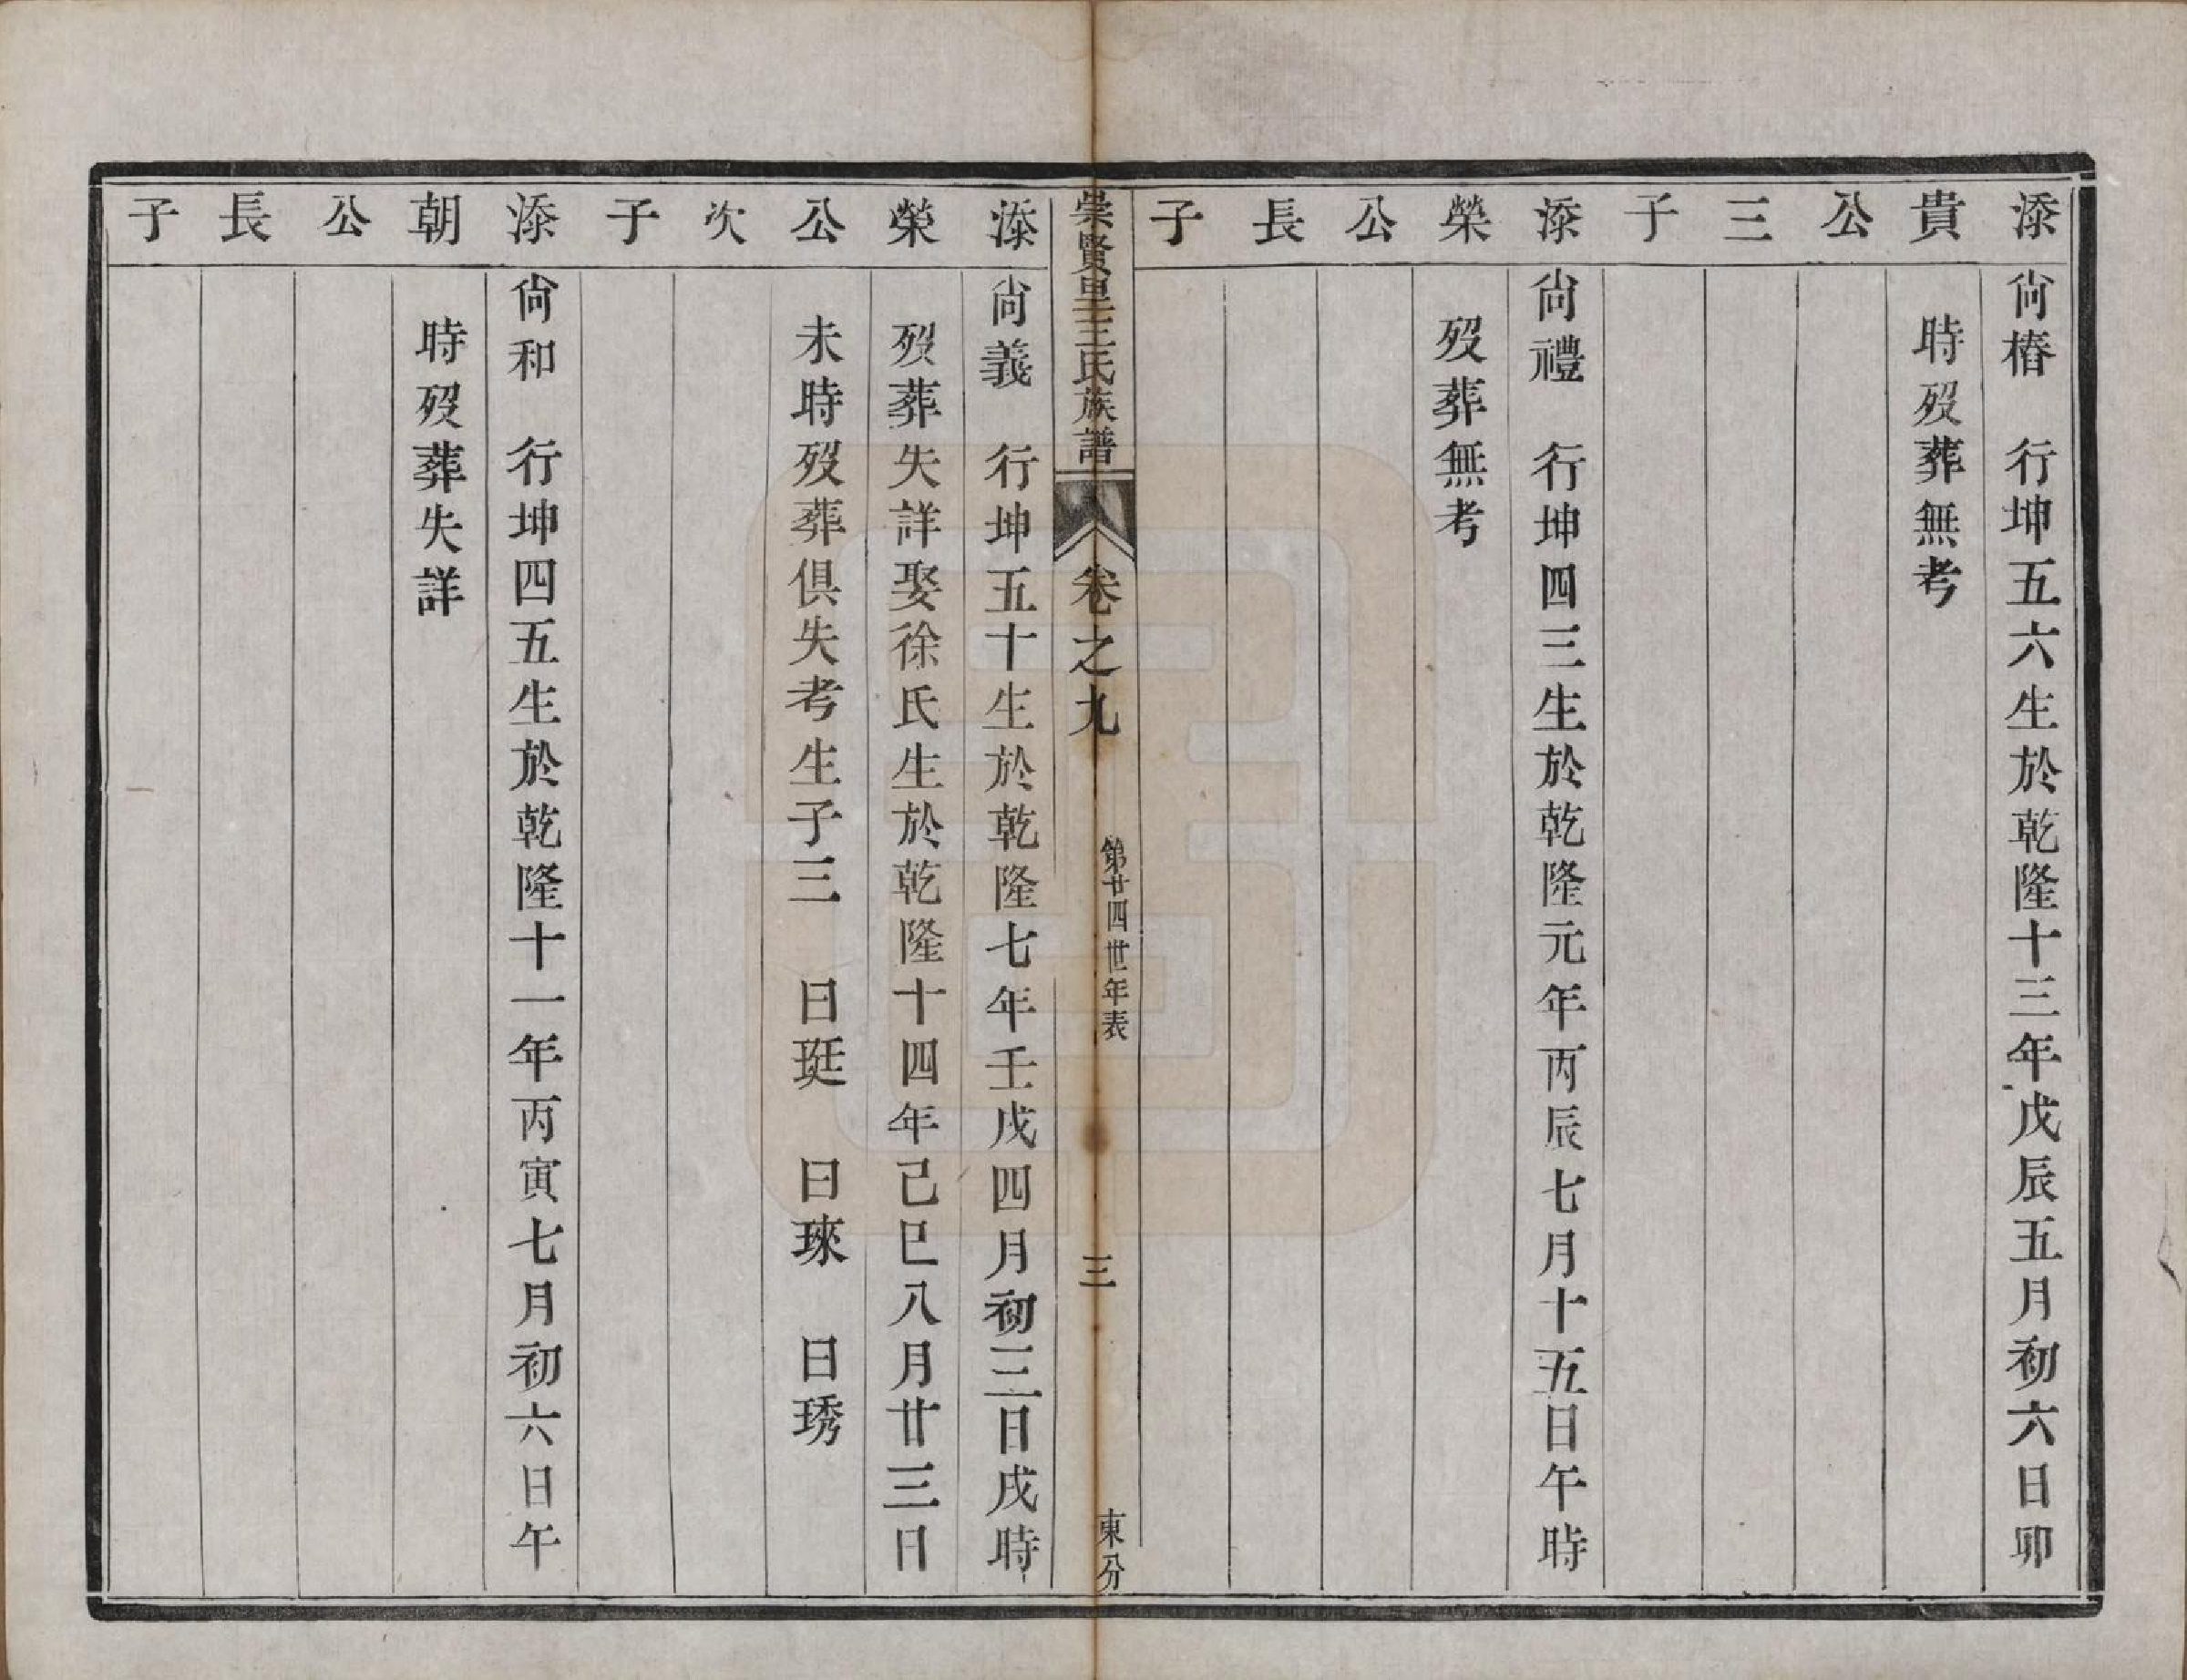 添貴公三子
尙椿　行坤五六生於乾隆十三年戊辰五月初六日卯
時歿葬無考
添榮公長子
尙禮　行坤四三生於乾隆元年丙辰七月十五日午時
歿葬無考
崇賢里王氏族譜　卷之九　第廿四世年表　三　東分
添榮公次子
尙義　行坤五十生於乾隆七年壬戌四月初三日戌時
歿葬失詳娶徐氏生於乾隆十四年己巳八月廿三日
未時歿葬俱失考生子三　曰珽　曰琜　曰琇
添朝公長子
尙和　行坤四五生於乾隆十一年丙寅七月初六日午
時歿葬失詳